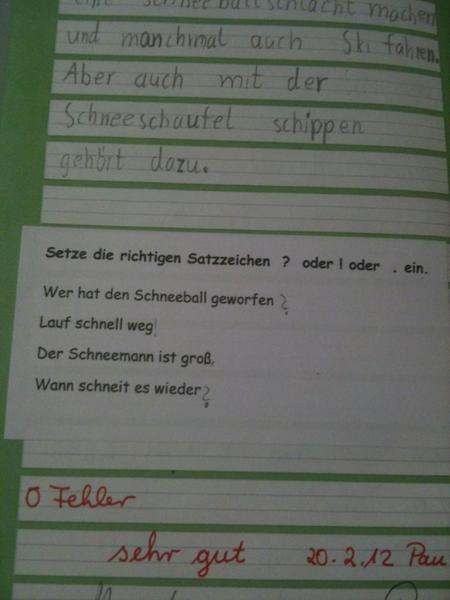 eine Schneeballschlacht machen
und manchmal auch Ski fahren.
Aber auch mit der
Schneeschaufel schippen
gehört dazu.
Setze die richtigen Satzzeichen ? oder ! oder . ein.
Wer hat den Schneeball geworfen ?
Lauf schnell weg!
Der Schneemann ist groß.
Wann schneit es wieder?
0 Fehler
sehr gut 20.2.12 Pau